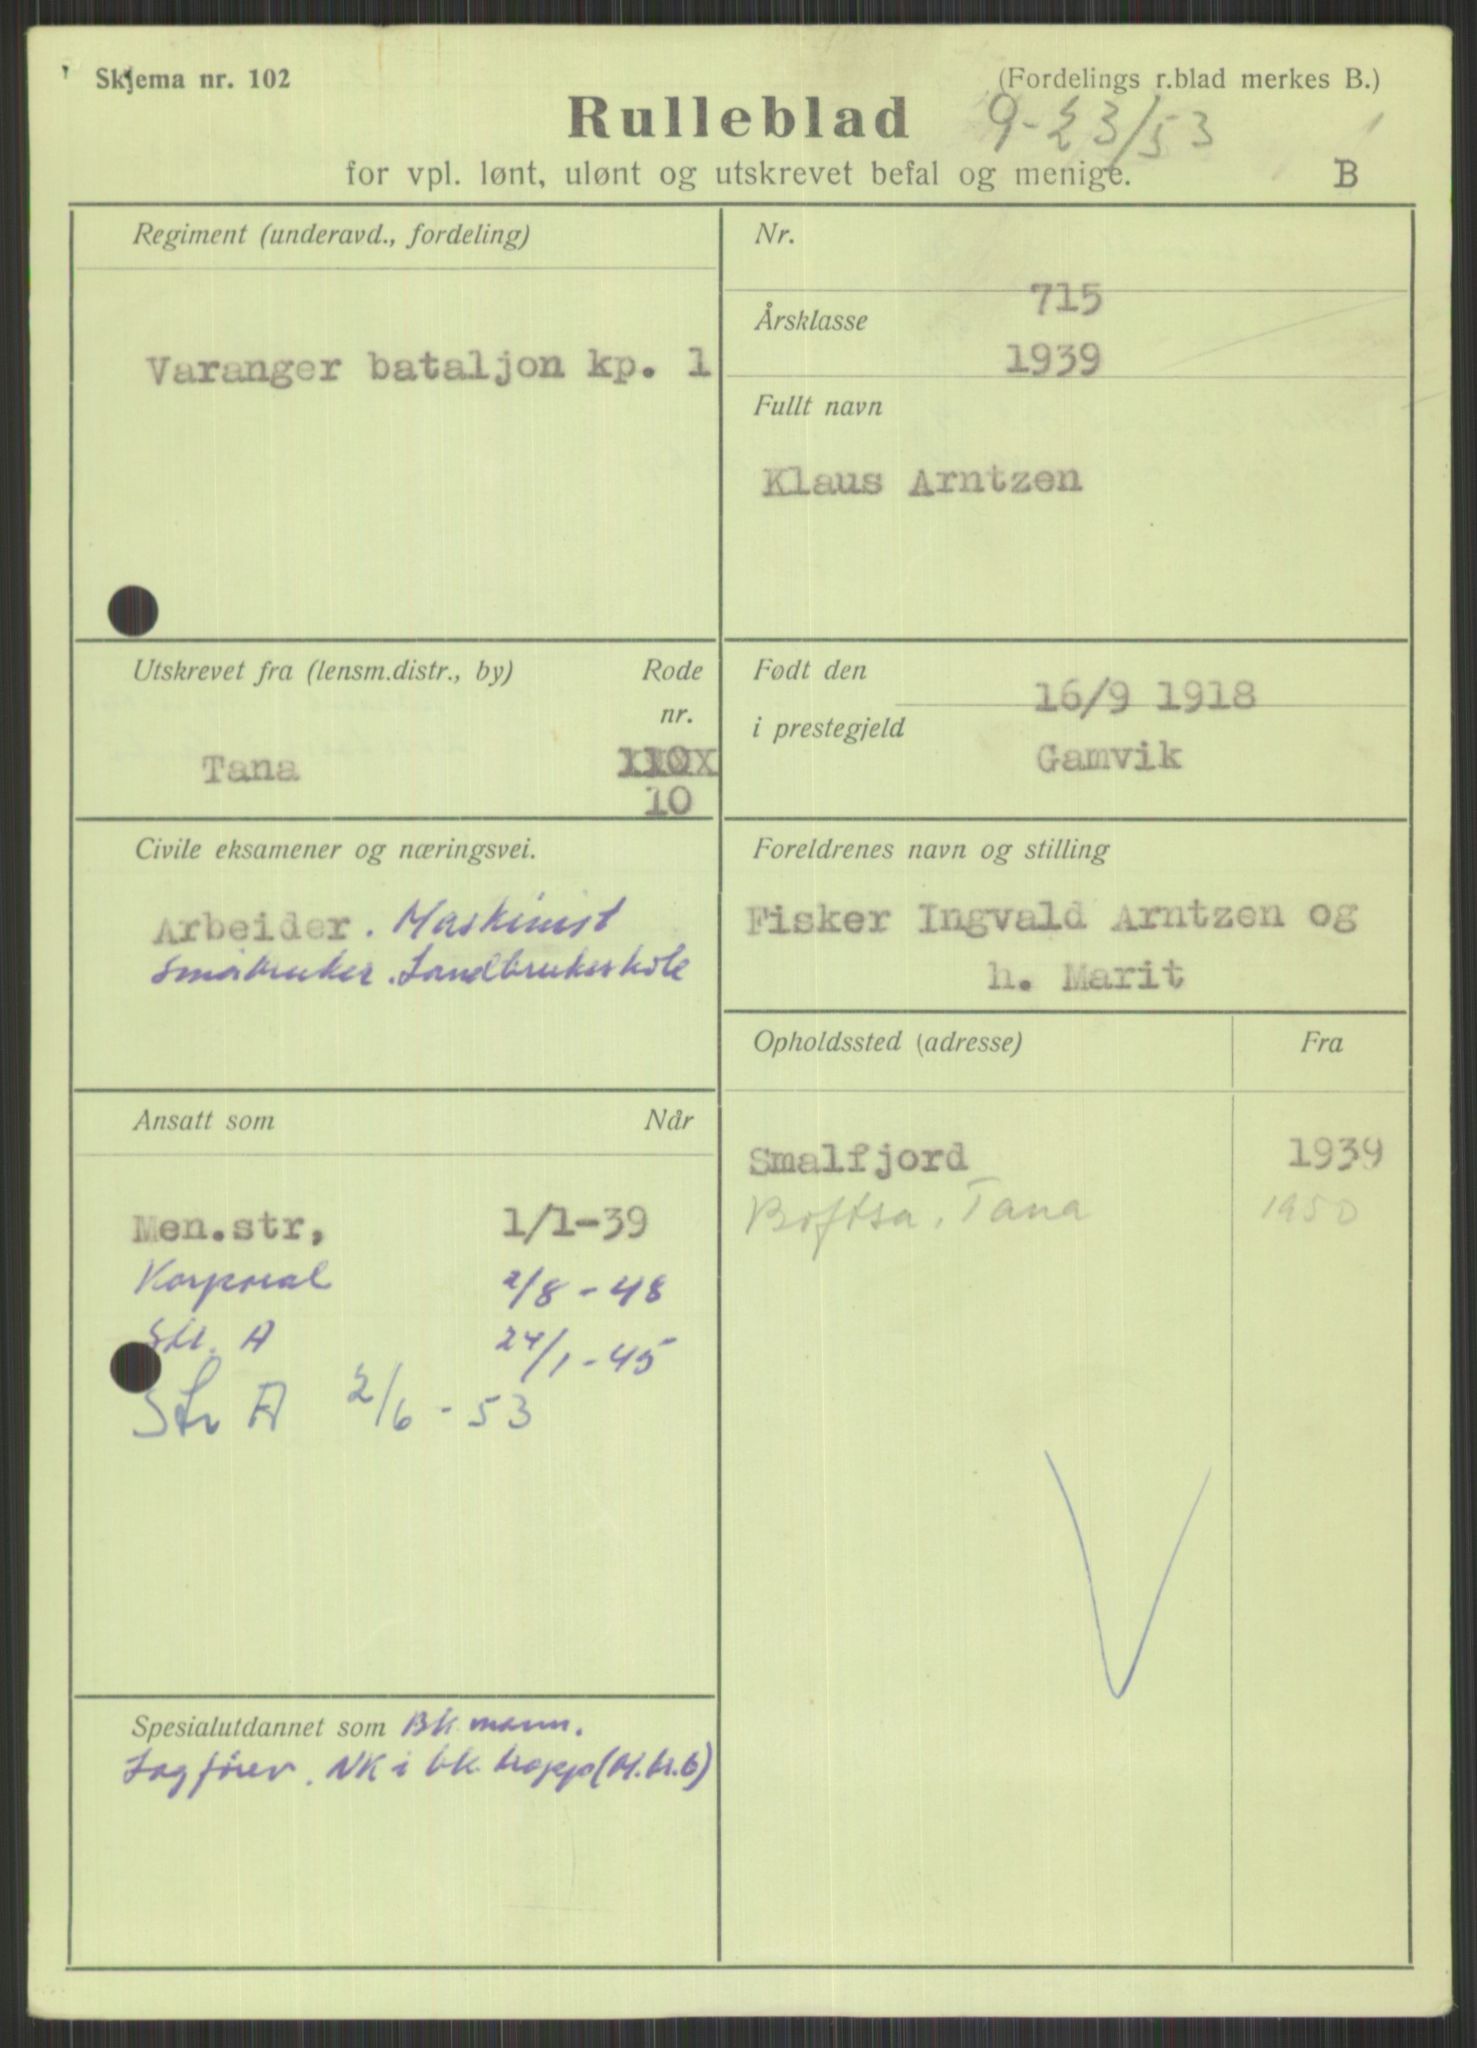 Skjema nr. 102
(Fordelings r.blad merkes B.)
Rulleblad
9-23/53
for vpl. lønt, ulønt og utskrevet befal og menige.
B
Regiment (underavd., fordeling)
Varanger bataljon kp. 1
Nr.
715
Årsklasse
1939
Fullt navn
Klaus Arntzen
Utskrevet fra (lensm.distr., by)
Rode
nr.
Tana
10
Født den
16/9 1918
i prestegjeld
Gamvik
Civile eksamener og næringsvei.
Arbeider. Maskinist
Småbruker. Landbrukskole
Foreldrenes navn og stilling
Fisker Ingvald Arntzen og
h. Marit
Opholdssted (adresse)
Fra
Smalfjord 1939
Boftsa, Tana 1950
Ansatt som
Når
Men.str, 1/1-39
Korporal 2/8-48
Stl. A 24/1-45
Str A 2/6-53
Spesialutdannet som Bk mann.
Lagfører. NK i bk. tropp